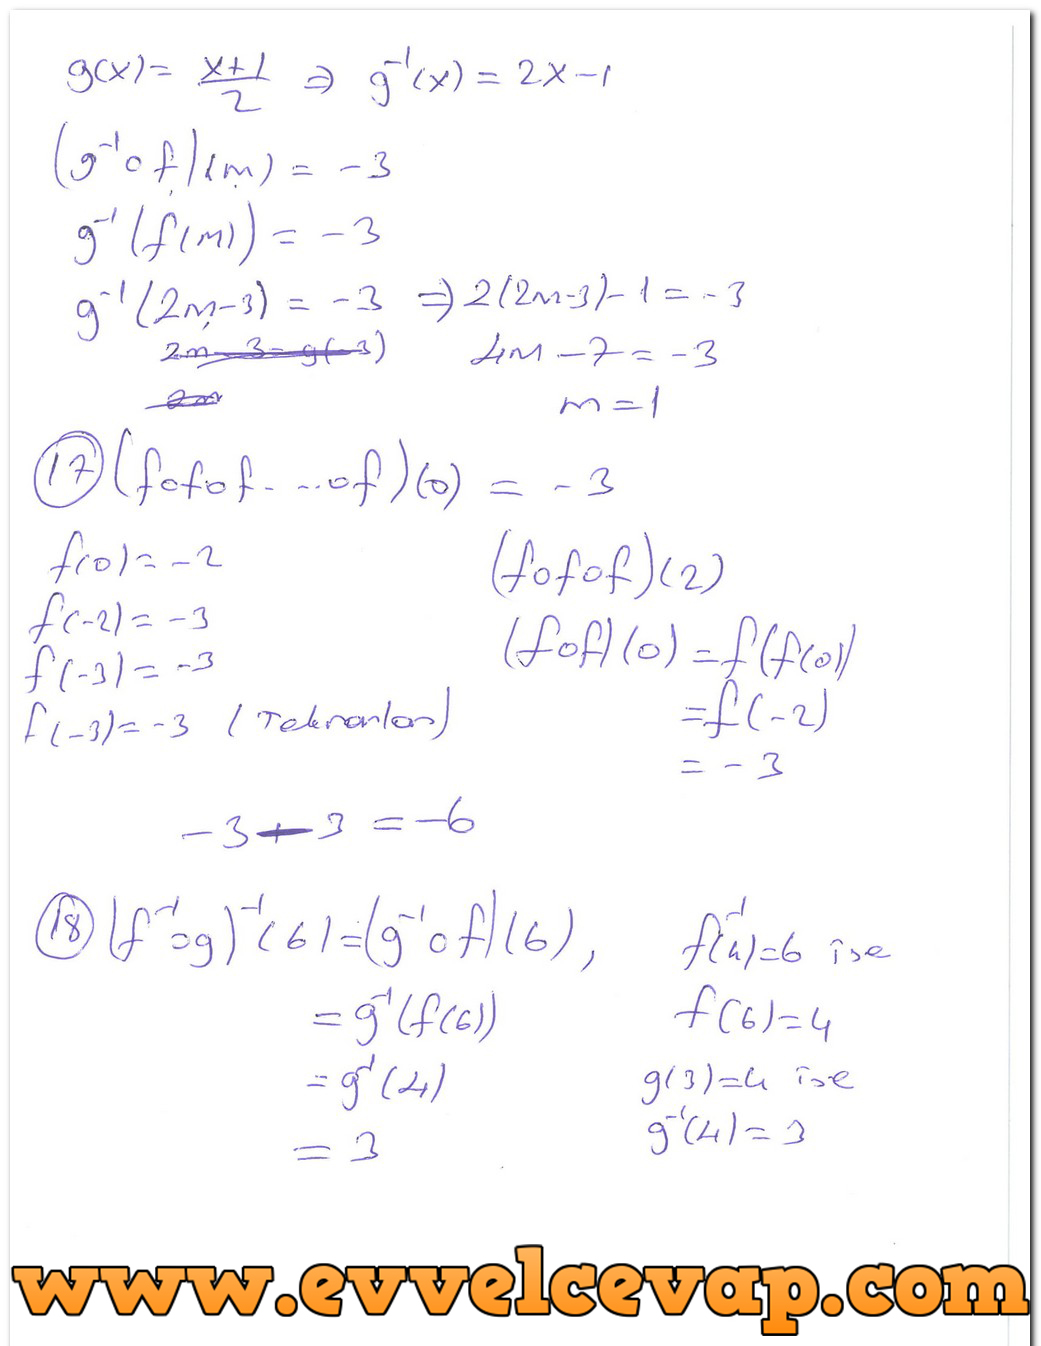 g(x) = (x+1)/2 ⇒ g⁻¹(x) = 2x-1
(g⁻¹of)(m) = -3
g⁻¹(f(m)) = -3
g⁻¹(2m-3) = -3 ⇒ 2(2m-3)-1 = -3
2m-3 = g(-3) 4m-7 = -3
2m m = 1
17 (fofof...of)(0) = -3
f(0) = -2 (fofof)(2)
f(-2) = -3 (fof)(0) = f(f(0))
f(-3) = -3 = f(-2)
f(-3) = -3 (Tekrarlar) = -3
-3+-3 = -6
18 (f⁻¹og)⁻¹(6) = (g⁻¹of)(6), f⁻¹(4)=6 ise
= g⁻¹(f(6)) f(6)=4
= g⁻¹(4) g(3)=4 ise
= 3 g⁻¹(4) = 3
www.evvelcevap.com